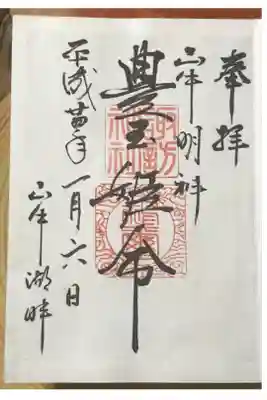 奉拝
山中明神
豐玉姫命
諏訪
神社
平成 年一月六日
山中湖畔